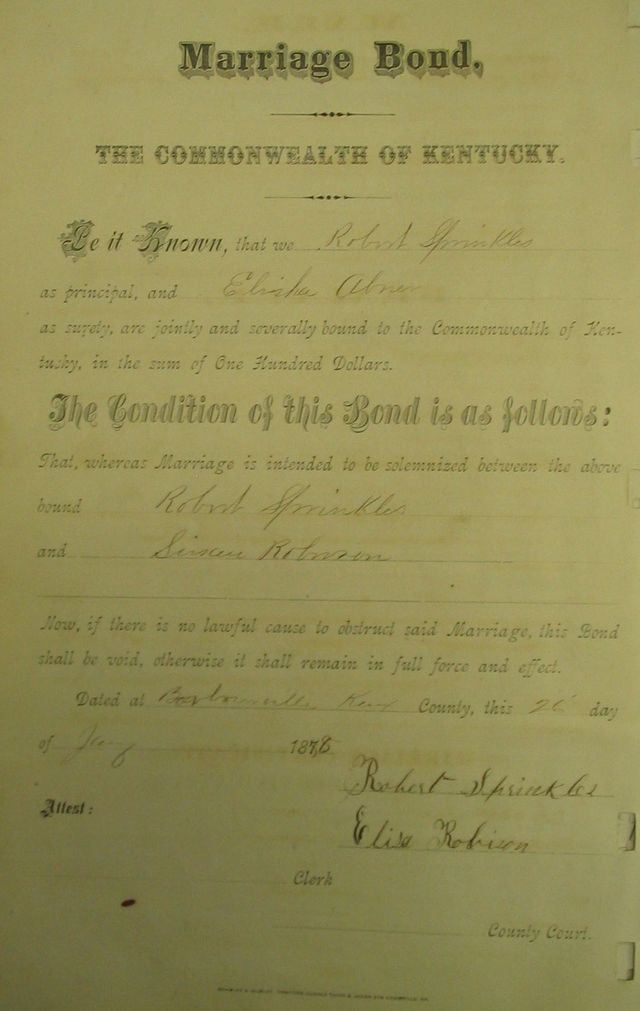 Marriage Bond,
THE COMMONWEALTH OF KENTUCKY.
Be it Known, that we Robert Sprinkles
as principal, and Elisha Abner
as surety, are jointly and severally bound to the Commonwealth of Ken-
tucky, in the sum of One Hundred Dollars.
The Condition of this Bond is as follows:
That, whereas Marriage is intended to be solemnized between the above
bound Robert Sprinkles
and Robinson
Now, if there is no lawful cause to obstruct said Marriage, this Bond
shall be void, otherwise it shall remain in full force and effect.
Dated at Barbourville Knox County, this 26 day
of 1878
Robert Sprinkles
Attest:
Elisa Robison
Clerk
County Court.